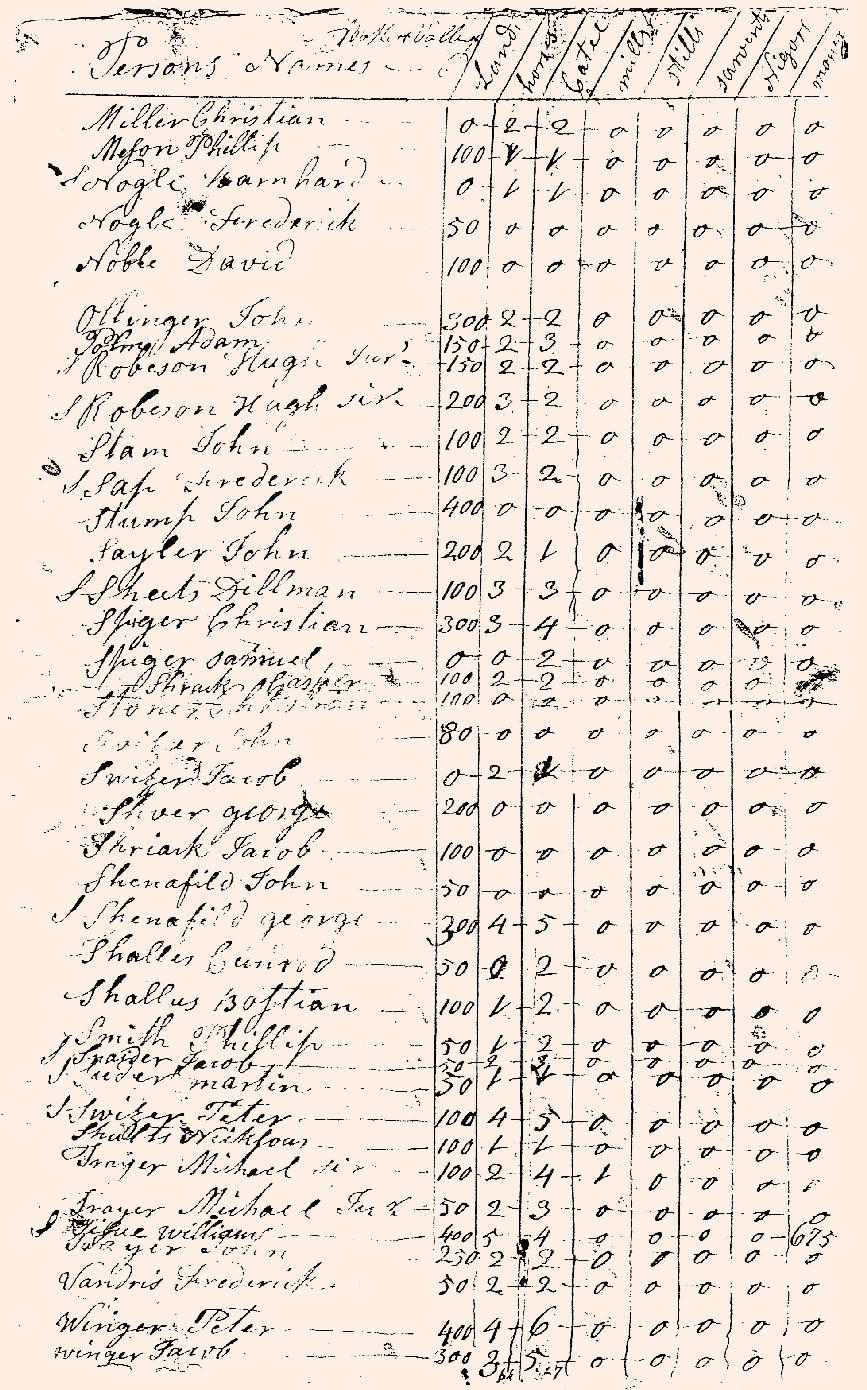 Persons Names Land horses Catel mills Stills sarvents Negors money
Miller Christian 0 2 2 0 0 0 0 0
Meson Phillip 100 1 1 0 0 0 0 0
Nogle Barnhard 0 1 1 0 0 0 0 0
Nogle Frederick 50 0 0 0 0 0 0 0
Noble David 100 0 0 0 0 0 0 0
Ollinger John 300 2 2 0 0 0 0 0
Adam 150 2 3 0 0 0 0 0
S Robeson Hugh Jur 150 2 2 0 0 0 0 0
S Robeson Hugh sir 200 3 2 0 0 0 0 0
Stam John 100 2 2 0 0 0 0 0
S Sap Frederick 100 3 2 0 0 0 0 0
Stump John 400 0 0 0 0 0 0 0
Sayler John 200 2 1 0 0 0 0 0
S Sheets Dillman 100 3 3 0 0 0 0 0
Spiger Christian 300 3 4 0 0 0 0 0
Spiger Samuel 0 0 2 0 0 0 0 0
Shrack Casper 100 2 2 0 0 0 0
100 0 2 0
Switzer John 80 0 0 0 0 0 0 0
Switzer Jacob 0 2 1 0 0 0 0 0
Shver george 200 0 0 0 0 0 0 0
Shriack Jacob 100 0 0 0 0 0 0 0
Shenafild John 50 0 0 0 0 0 0 0
S Shenafild george 300 4 5 0 0 0 0 0
Shalles Cunrod 50 0 2 0 0 0 0 0
Shallus Bostian 100 1 2 0 0 0 0 0
S Smith Phillip 50 1 2 0 0 0 0 0
S Snaider Jacob 50 2 3 0 0 0 0 0
S martin 50 1 1 0 0 0 0 0
S Switzer Peter 100 4 5 0 0 0 0 0
Shults Nicklous 100 1 1 0 0 0 0 0
Trayer Michael sir 100 2 4 1 0 0 0
Trayer Michael Jur 50 2 3 0 0 0 0 0
williams 400 5 4 0 0 0 0 675
Trayer John 250 2 2 0 0 0 0 0
Vandris Frederick 50 2 2 0 0 0 0 0
Winger Peter 400 4 6 0 0 0 0 0
winger Jacob 300 3 5 0 0 0 0 0